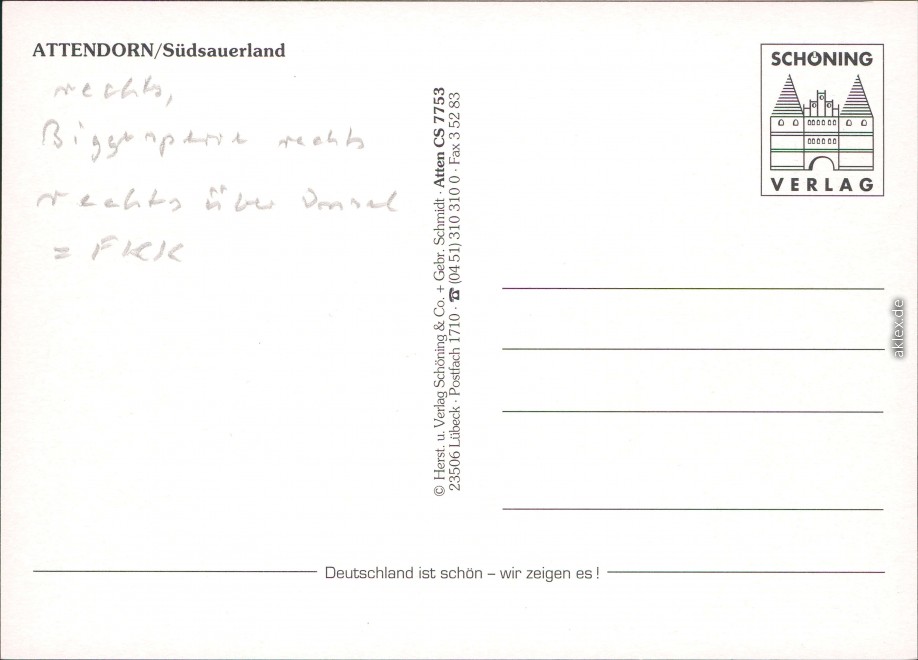 ATTENDORN/Südsauerland
rechts,
Biggesperre rechts
rechts über
= FKK
© Herst. u. Verlag Schöning & Co. + Gebr. Schmidt · Atten CS 7753
23506 Lübeck · Postfach 1710 · ☎ (04 51) 310 310 0 · Fax 3 52 83
SCHÖNING
VERLAG
Deutschland ist schön – wir zeigen es !
aklex.de